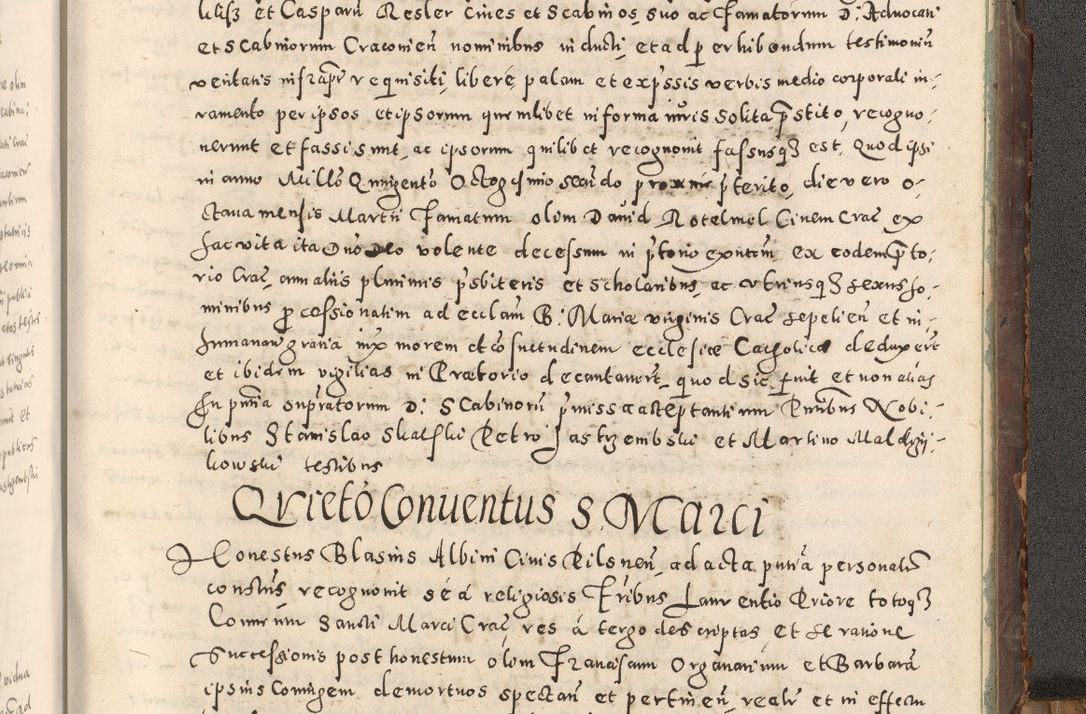 et Casparū Resler Ciues et Scabinos, suo ac Famatorum D: Aduocati
et Scabinorum Cracouien̄ nominibus inducti, et ad perhibendum testimoniū
veritatis infrapr̄ requisiti, libere, palam et exp̄ssis verbis medio corporali iu-
ramento per ipsos et ipsorum quemlibet in forma iuris solita p̄stito, recogno-
uerunt et fassi sunt, ac ipsorum quilibet recognouit fassusq3 est, Quod ipsi
in anno Millō Quingentō Octogesimo secūdo proxime p̄terito, die vero o-
ctaua mensis Martii Famatum olim Dauid Rotelmel Ciuem Crac̄ ex
hac vita ita Dn̄o Deo volente decessum in p̄torio exn̄tem, ex eodem p̄to-
rio Crac̄, cum aliis plurimis p̄sbiteris et scholaribus, ac vtriusq3 sexus ho-
minibus processionatim ad eccl̄am B: Mariæ virginis Crac̄ sepelien̄ et in-
humanan̄ gratia iux morem et cōsuetudinem ecclesiæ Catholicæ deduxerūt
et ibidem vigilias in Prætorio decantauerūt, quod sic fuit et non alias
In pn̄tia supratorum D: Scabinorū p̄missa acceptantium Pn̄tibus Nobi-
libus Stanislao Skalski Petro Jastrzembski et Martino Maldrzi-
kowski testibus
Qvietō Conuentus S. Marci
Honestus Blasius Albini Ciuis Pilsnen̄, ad acta pn̄tia personalr̄
constūs, recognouit se a religiosis Frībus Laurentio Priore totoq3
Conuentu Sancti Marci Crac̄, res a tergo descriptas et se ratione
Successionis post honestum olim Franciscum Organarium et Barbarā
ipsius Coniugem demortuos spectan̄ et pertinen̄, realr̄ et in effectu